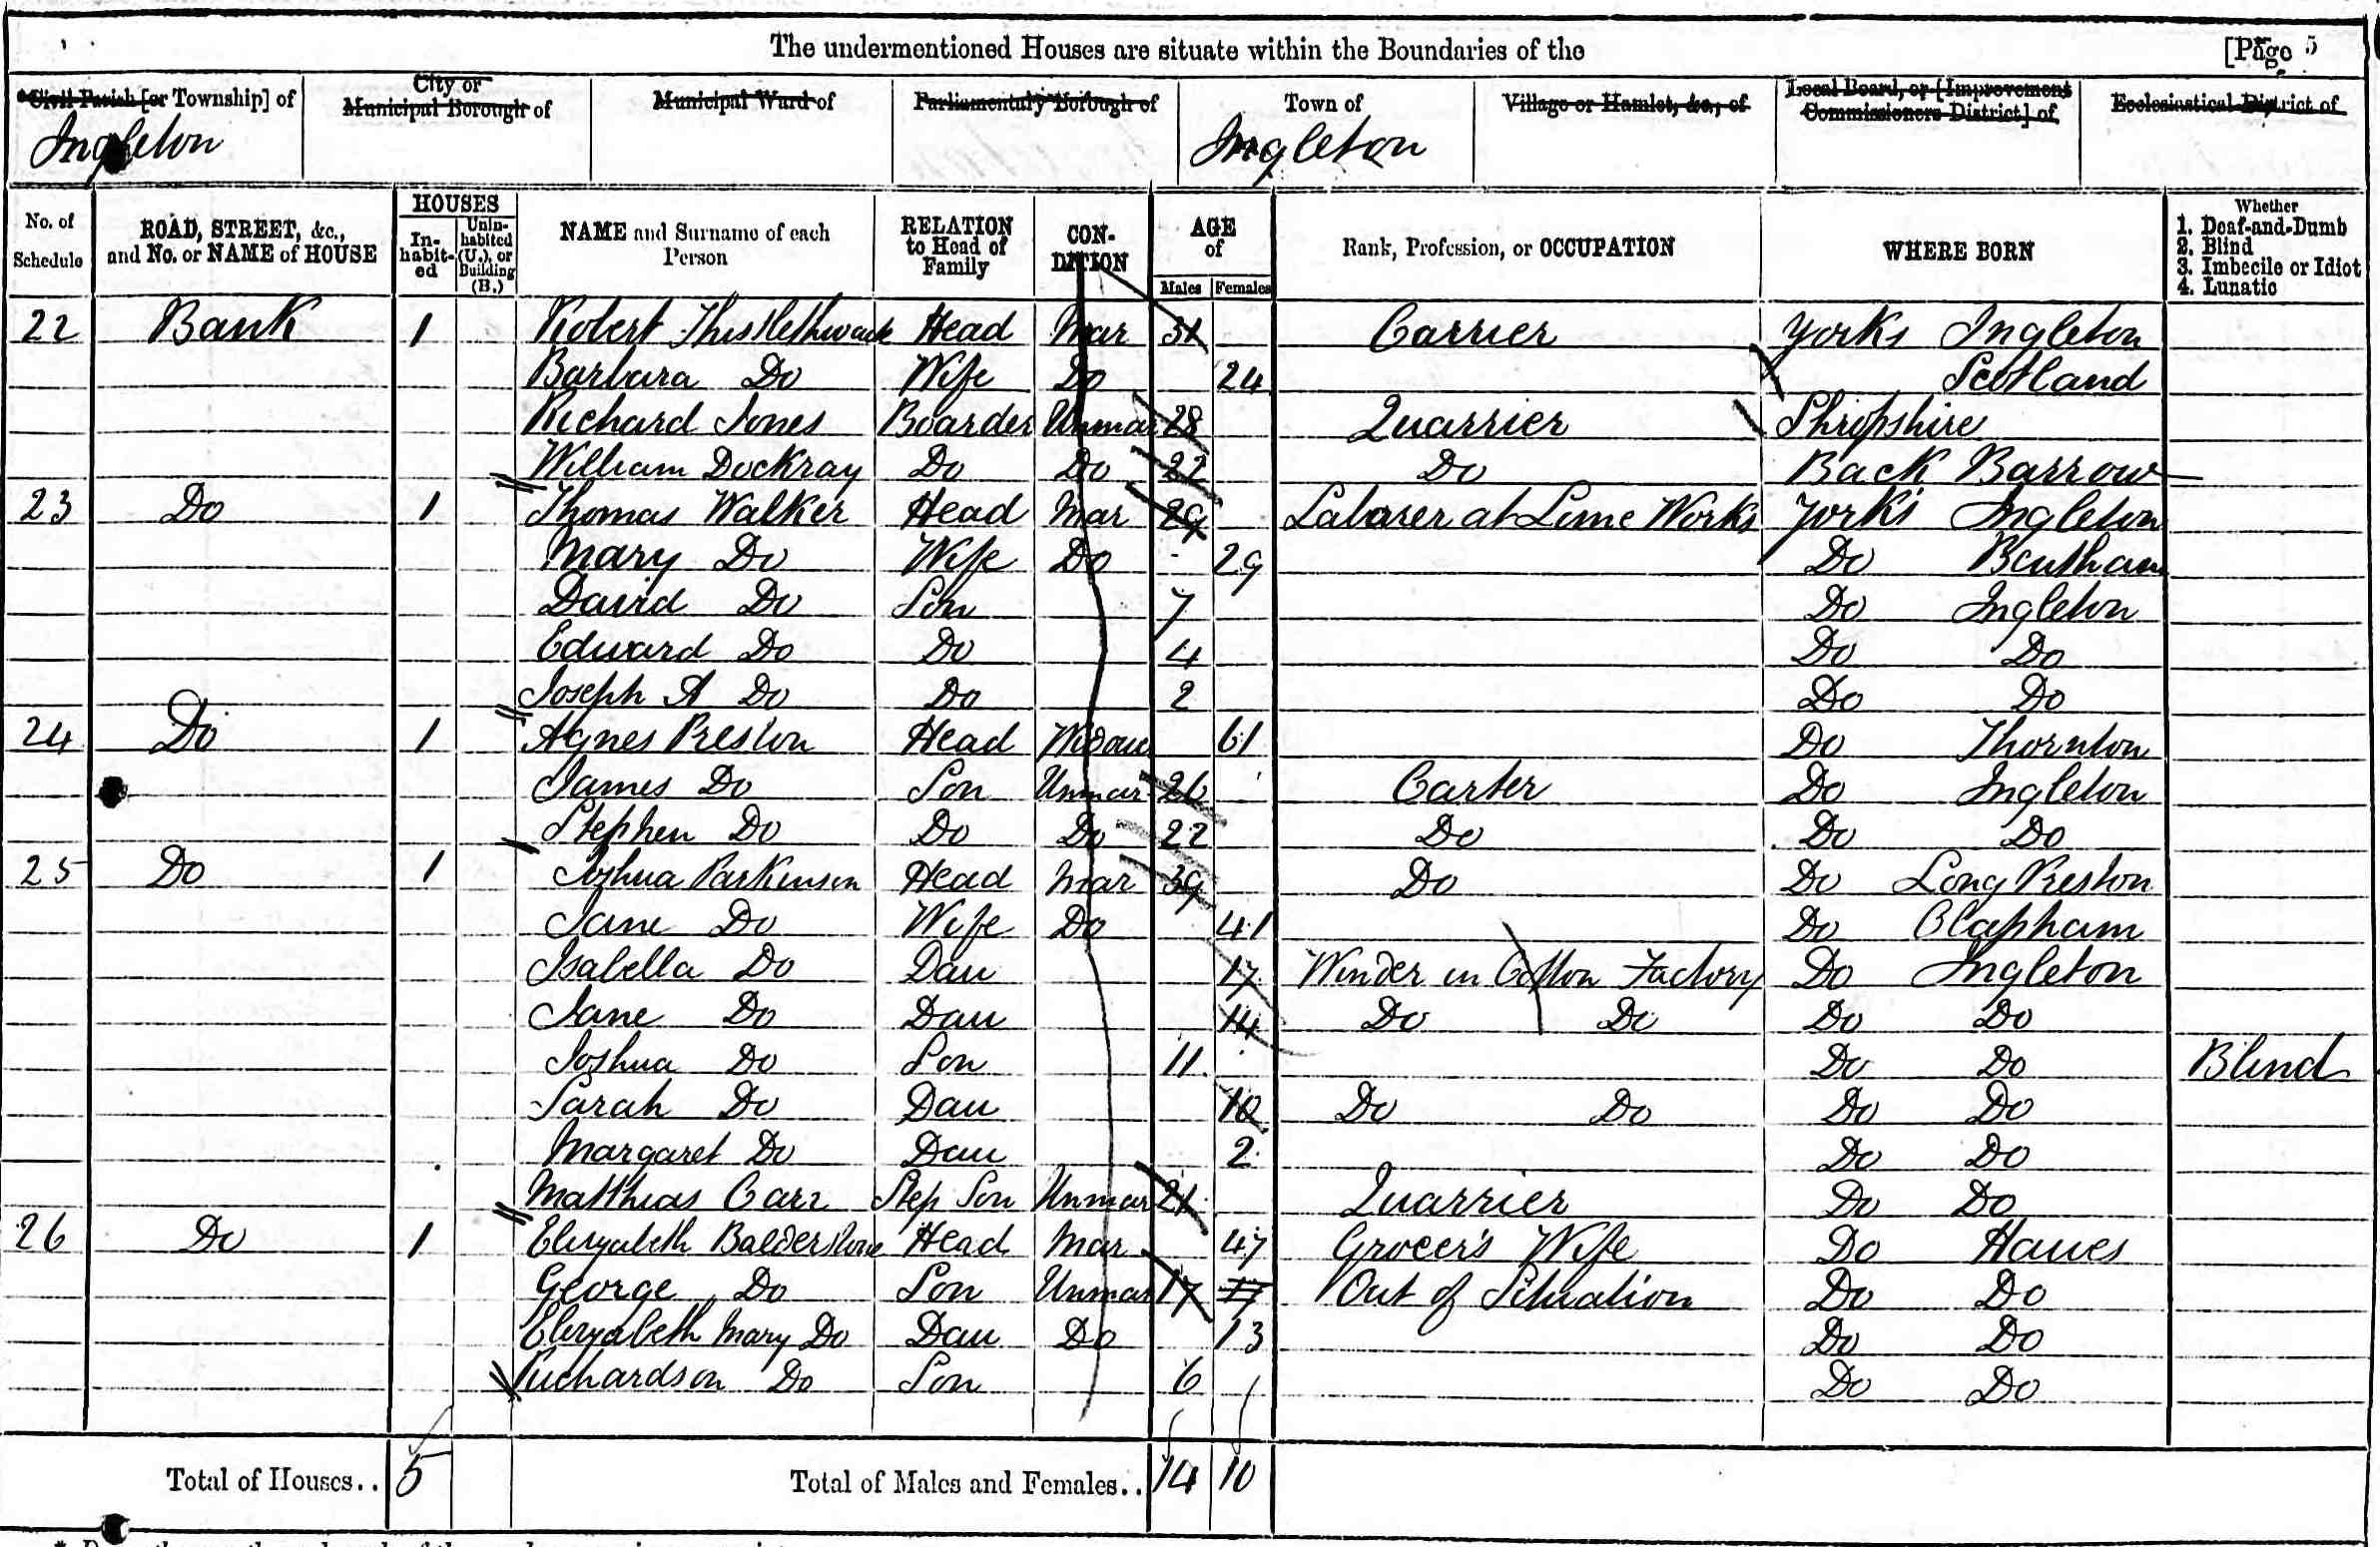 The undermentioned Houses are situate within the Boundaries of the [Page 5
Civil Parish [or Township] of City or Municipal Borough of Municipal Ward of Parliamentary Borough of Town of Village or Hamlet, &c., of Local Board, or [Improvement Commissioners District] of Ecclesiastical District of
Ingleton Ingleton
No. of Schedule ROAD, STREET, &c., and No. or NAME of HOUSE HOUSES In-habit-ed Unin-habited (U.), or Building (B.) NAME and Surname of each Person RELATION to Head of Family CON-DITION AGE of Males Females Rank, Profession, or OCCUPATION WHERE BORN Whether 1. Deaf-and-Dumb 2. Blind 3. Imbecile or Idiot 4. Lunatic
22 Bank 1 Robert Thistlethwaite Head Mar 31 Carrier Yorks Ingleton
Barbara Do Wife Do 24 Scotland
Richard Jones Boarder Unmar 28 Quarrier Shropshire
William Dockray Do Do 22 Do Back Barrow
23 Do 1 Thomas Walker Head Mar 29 Laborer at Lime Works Yorks Ingleton
Mary Do Wife Do 29 Do Bentham
David Do Son 7 Do Ingleton
Edward Do Do 4 Do Do
Joseph A Do Do 2 Do Do
24 Do 1 Agnes Preston Head Widow 61 Do Thornton
James Do Son Unmar 26 Carter Do Ingleton
Stephen Do Do Do 22 Do Do Do
25 Do 1 Joshua Parkinson Head Mar 39 Do Do Long Preston
Jane Do Wife Do 41 Do Clapham
Isabella Do Dau 17 Winder in Cotton Factory Do Ingleton
Jane Do Dau 14 Do Do Do Do
Joshua Do Son 11 Do Do Blind
Sarah Do Dau 10 Do Do Do Do
Margaret Do Dau 2 Do Do
Matthias Carr Step Son Unmar 21 Quarrier Do Do
26 Do 1 Elizabeth Balderstone Head Mar 47 Grocer's Wife Do Hawes
George Do Son Unmar 17 17 Out of Situation Do Do
Elizabeth Mary Do Dau Do 13 Do Do
Richardson Do Son 6 Do Do
Total of Houses.. 5 Total of Males and Females.. 14 10